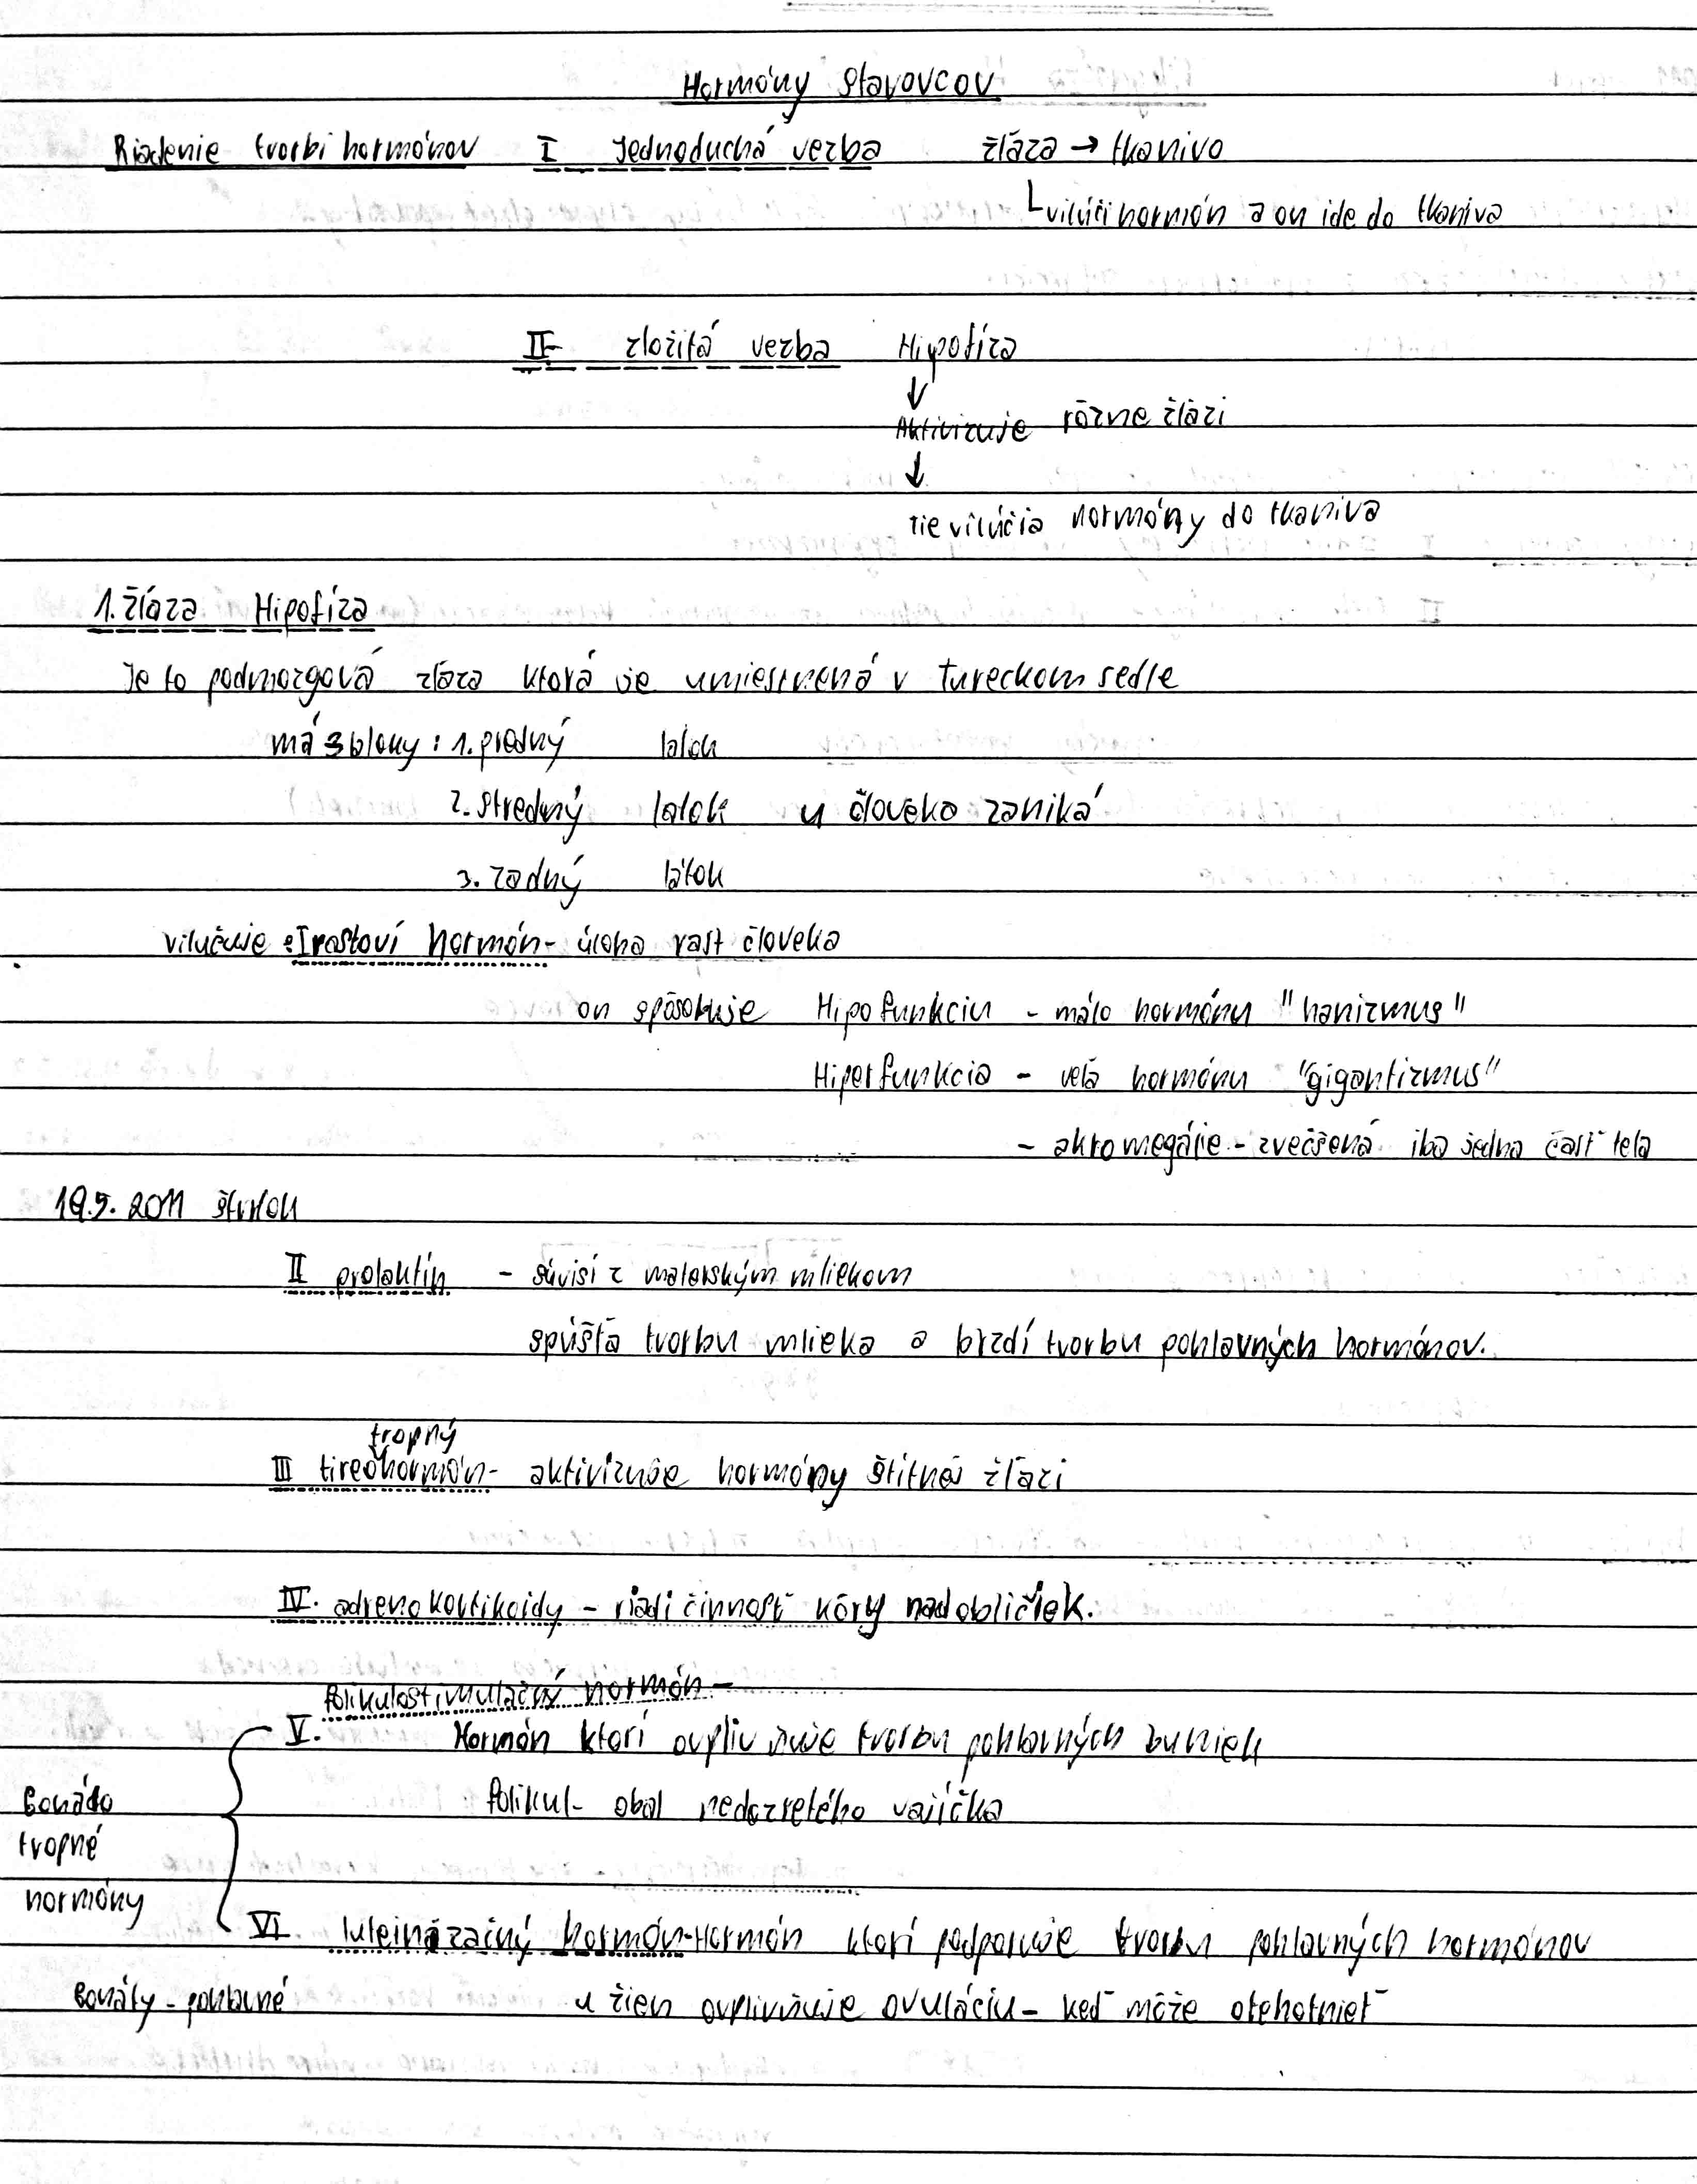 Hormóny stavovcov
Riadenie tvorbi hormónov I Jednoduchá vezba žláza → tkanivo
vilúči hormón a on ide do tkaniva
II zložitá vezba Hipofíza
↓
Aktivizuje rôzne žlázi
↓
tie vilúčia hormóny do tkaniva
1. Žláza Hipofíza
Je to podmozgová žláza ktorá je umiestnená v tureckom sedle
má 3 bloky: 1. predný lalok
2. stredný lalok u človeka zaniká
3. zadný lalok
vilučuje: I rastoví hormón - úloha rast človeka
on spôsobuje Hipofunkciu - málo hormónu "nanizmus"
Hiperfunkcia - vela hormónu "gigantizmus"
- akromegálie - zvečšená iba jedna časť tela
19.5. 2011 štvrtok
II prolaktín - súvisí z materským mliekom
spúšťa tvorbu mlieka a brzdí tvorbu pohlavných hormónov.
tropný
III tireohormón - aktivizuje hormóny štítnej žlázi
IV. adrenokortikoidy - riadi činnosť kôry nadobličiek.
folikulostimulačný hormón -
V. Hormón ktorí ovplivňuje tvorbu pohlavných buniek
folikul - obal nedozretého vajíčka
Gonádo
tropné
hormóny
VI luteinizačný hormón - Hormón ktorí podporuje tvorbu pohlavných hormónov
Gonády - pohlavné u žien ovplivňuje ovuláciu - keď môže otehotnieť